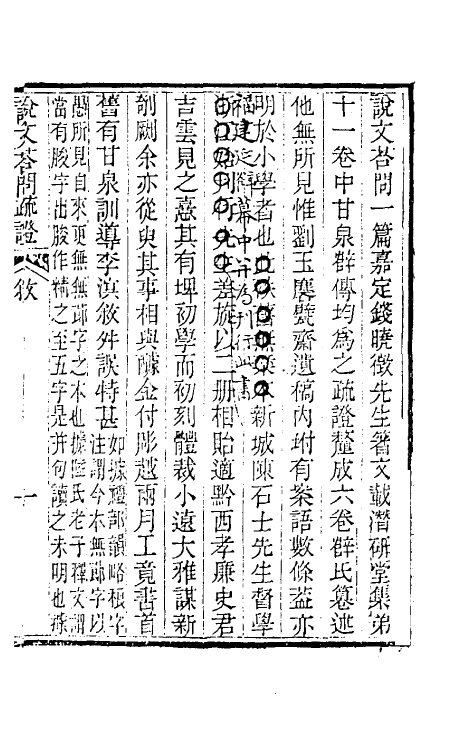 說文荅問一篇嘉定錢曉徵先生箸文載潛研堂集弟
十一卷中甘泉薛傳均爲之疏證釐成六卷薛氏纂述
他無所見惟劉玉麐甓齋遺稿內坿有案語數條葢亦
明於小學者也新城陳石士先生督學
福建延薛幕中并爲刊行此書
差旋以二册相貽適黔西孝廉史君
吉雲見之憙其有埤初學而初刻體裁小遠大雅謀新
剞劂余亦從臾其事相與醵金付彫越兩月工竟舊首
皆有甘泉訓導李滇敘舛誤特甚如據禮部韻略梫字
注謂今本無
字以
愚所見自來更無無
字之本也據陸氏老子釋文謂
當有朘字出朘作精之至五字是并句讀之未明也
說文荅問疏證
敘
一